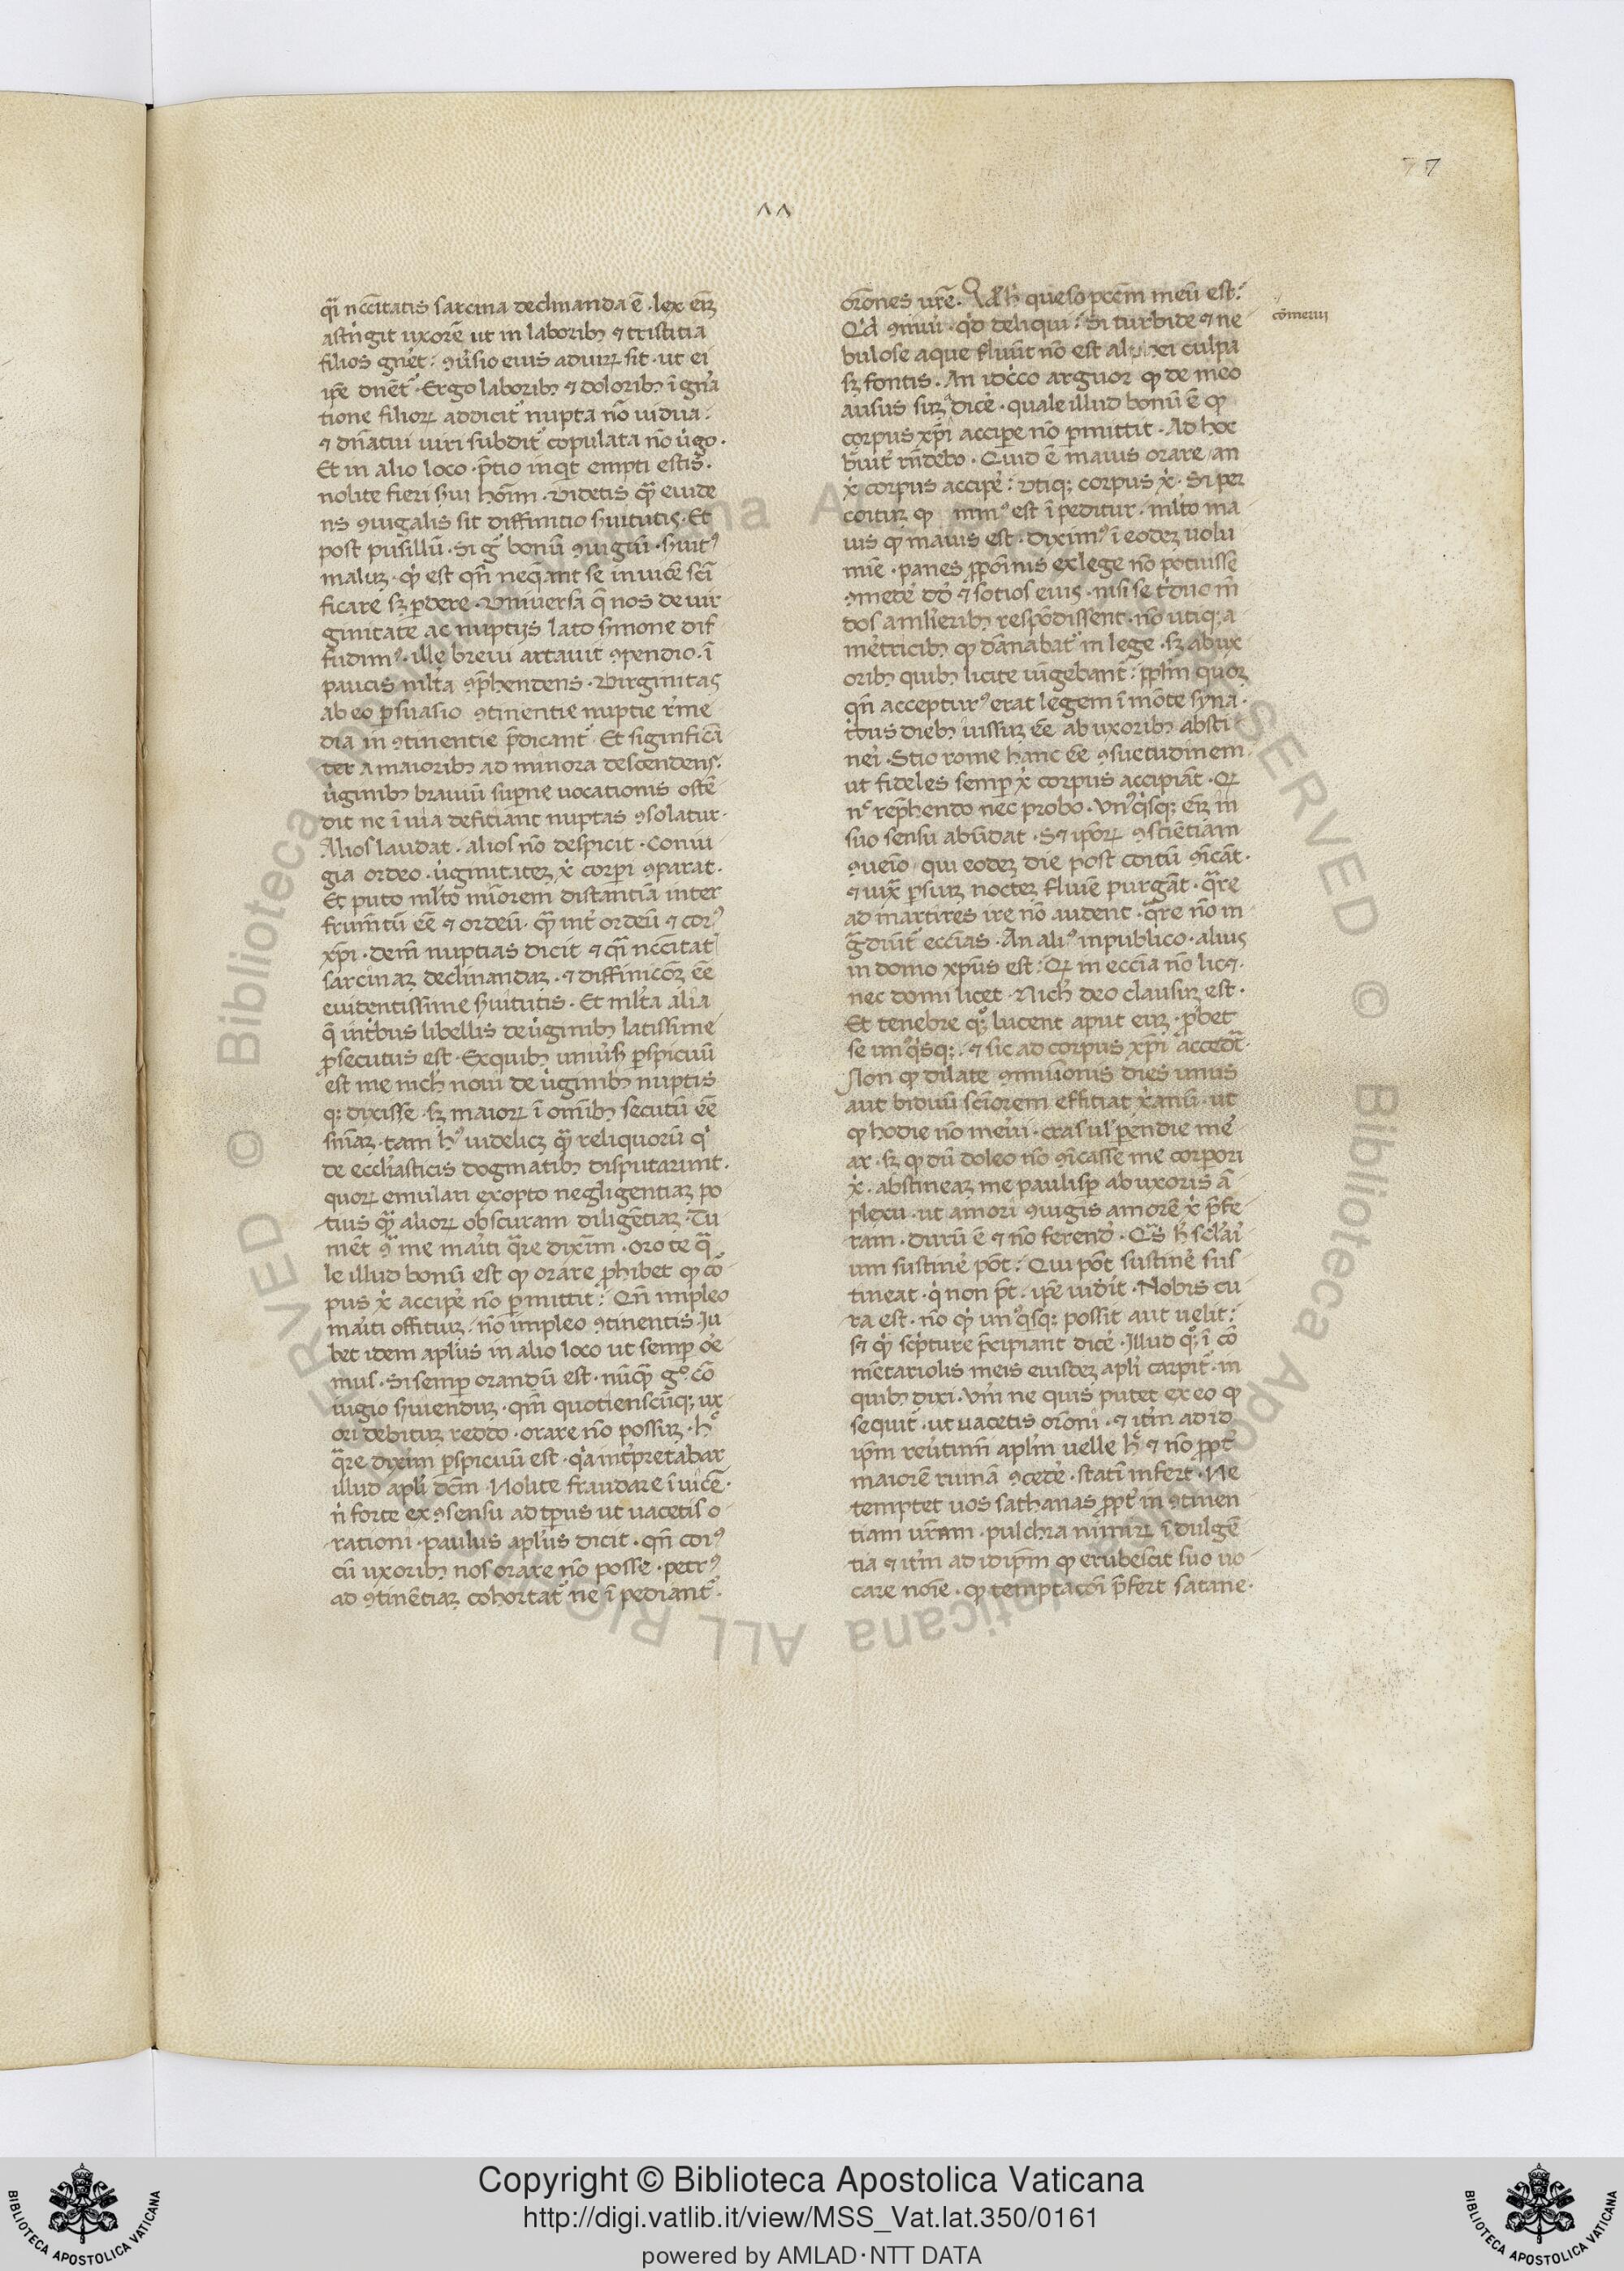 77
ΛΛ
q̃i nccītatis sarcina declinanda ē · lex eīz
astr̍ngit uxorē ut in laborib; ⁊ tristitia
filios gn̄et : ꝯu̍sio eius ad uirꝝ sit · ut ei
ip̄e dn̄et᷑ · Ergo laborib; ⁊ dolorib; ī gn̄a
tione filioꝝ addicit᷑ nupta nō uidua :
⁊ dn̄atui uiri subdit᷑ copulata nō u̍go ·
Et in alio loco · p̄tio inqt̍ empti estis ·
nolite fieri s̄ui hoīm · Videtis qꝫ̃ euide
ns ꝯiugalis sit diffinitio s̄uitutis · Et
post pusillū · Si g̊ bonū ꝯiugiū · s̄uit᷒
maluꝫ · qꝫ̍ est qn̄ neq̄ant se inuicē scī
ficare sꝫ ꝑdere · Vniuersa q̄ nos de uir
ginitate ac nuptijs lato s̄mone dif
fudim᷒ · ille breui artauit ꝯpendio · ī
paucis ml̍ta ꝯp̄hendens · Virginitas
ab eo ꝑsuasio ꝯtinentie nuptie r̄me
dia in ꝯtinentie p̄dicant᷑ · Et significā
ter a maiorib; ad minora descendens ·
u̍ginib; brauiū suꝑne uocationis ostē
dit ne ī uia defitiant nuptas ꝯsolatur ·
Alios laudat · alios nō despicit · Coniu
gia ordeo · u̍ginitateꝫ x̍ corꝑi ꝯparat ·
Et puto ml̍to mīorem distantiā inter
frum̄tū eē ⁊ ordeū · qꝫ̃ int̍ ordeū ⁊ cor᷒
xp̄i · dem̄ nuptias dicit ⁊ q̃i nccītat
sarcinaꝫ declinandaꝫ · ⁊ diffinicōꝫ eē
euidentissime s̄uitutis · Et ml̍ta alia
q̄ in tr̍bus libellis de u̍ginib; latissime
ꝓsecutus est · Ex quib; uniu̍s̄ ꝑspicuū
est me nich̍ noui de u̍ginib; nuptis
q; dixisse · sꝫ maioꝝ ī omīb; secutū eē
sn̄iaꝫ · tam h᷒ uidelicꝫ qꝫ̃ reliquorū q̍
de eccl̍iasticis dogmatib; disputarunt ·
quoꝝ emulari exopto negligentiaꝫ po
tius qꝫ̃ alioꝝ obscuram diligētiaꝫ · Tu
mēt ꝯ̃ me mar̍ti q̃re dixeīm · oro te q̃
le illud bonū est ꝙ orare ꝓhibet ꝙ cō
pus x̍ accipe̍ nō ꝑmittit : Qn̄ impleo
mar̍ti offitiuꝫ · nō impleo ꝯtinentis · Ju
bet idem apl̍us in alio loco ut semꝑ oē
mus · Si semꝑ orandū est · nūqꝫ̃ g̊ · cō
iugio s̄uienduꝫ · qm̄ quotienscūq; ux
ori debituꝫ reddo · orare nō possuꝫ · h᷒
q̃re dixeīm ꝑspicuū est · qa̍ int̍p̄tabar
illud apl̍i dcm̄ · Nolite fraudare ī uicē ·
n̍ forte ex ꝯsensu ad tꝑus ut uacetis o
rationi · paulus apl̍us dicit · qn̄ coi᷒
cū uxorib; nos orare nō posse · petr᷒
ad ꝯtinētiaꝫ cohortat᷑ ne ī pediant᷑ ·
orōnes ur̄e · Qd̍ h̄ queso pccm̄ meū est :
Qd̍ ꝯmiui · qd̍ deliqui : Si turbide ⁊ ne
bulose aque fluūt nō est aluei culpa
sꝫ fontis · An idcc̍o arguor ꝙ de meo
ausus suꝫ dice̍ · quale illud bonū ē ꝙ
corpus xp̄i accipere nō ꝑmittit · Ad hoc
br̄uit̍ rn̄debo · Quid ē maius orare an
x̍ corpus accipe̍ : utiq; corpus x̍ · Si per
coituꝫ ꝙ min᷒ est ī peditur · ml̍to ma
gis ꝙ maius est · diximꝰ ī eodeꝫ uolu
mīe · panes ꝓpōnis ex lege nō potuisse
ꝯmede̍ dd̍ ⁊ sotios eius · nisi se tr̍duo m̄
dos a mlie̍rib; respōdissent · nō utiq; a
me̍tricib; ꝙ dānabat᷑ in lege · sꝫ ab ux
orib; quib; licite iūgebant᷑ · ꝓpl̍m quoꝫ
qn̄ acceptur᷒ erat legem ī mōte syna ·
tr̍bus dieb; iussuꝫ eē ab uxorib; absti
nei̍ · Scio rome hanc eē ꝯsuetudinem
ut fideles semꝑ x̍ corpus accipiāt · Qꝫ
n᷒ rep̄hendo nec probo · Vn᷒qs̍q; eīz in
suo sensu abūdat · Sꝫ ipsoꝝ ꝯsciētiam
ꝯueīo / qui eodeꝫ die post coitū ꝯīcāt ·
⁊ iux̃ ꝑsiuꝫ nocteꝫ fluīe purgāt · q̃re
ad martires ire nō audent · q̃re nō in
g̃diūt᷑ eccīas · An ali᷒ in publico · alius
in domo xp̄us est : Qꝫ in eccīa nō licꝫ ·
nec domi licet · Nich̍ deo clausuꝫ est ·
Et tenebre qꝫ̊ lucent aput euꝫ · ꝓbet
se un᷒qs̍q; · ⁊ sic ad corpus xp̄i accedat ·
Non ꝙ dilate ꝯmuīonis dies unus
aut biduū sctīorem effitiat xān̄ū · ut
ꝙ hodie nō mer̍ui · cras ul̍ ꝑendie me̍
ar · sꝫ ꝙ dū doleo nō ꝯīcasse me corꝑori
x̍ · abstineaꝫ me paulisꝑ ab uxoris ā
plexu · ut amori ꝯiugis amorē x̍ p̄fe
ram · durū ē ⁊ nō ferend̍ · Qs̃ h̄ sc̍l̍ai̍
um sustine̍ pōt : Qui pōt sustine̍ sus
tineat · q̍ non pt̄ · ip̄e uid̍it · Nobis cu
ra est · nō qꝫ̍ un᷒qs̍q; possit aut uelit :
sꝫ qꝫ̍ sc̍pture p̄cipiant dice̍ · Illud qꝫ̊ ī cō
mētariolis meis eiusdeꝫ apl̍i carpit᷑ · in
quib; dixi · Vm̄ ne quis putet ex eo ꝙ
sequit᷑ · ut uacetis orōni · ⁊ itm̍ ad id
ip̄m reu̍timī apl̍m uelle h᷒ ⁊ nō ꝓpt̍
maiorē ruinā ꝯcede̍ · statī infert · Ne
temptet uos sathanas ꝓpt̍ in ꝯtinen
tiam ur̄am · pulchra nimiꝝ ī dulgē
tia ⁊ itm̍ ad idip̄m ꝙ erubescit suo uo
care noīe · ꝙ temptacōi p̄fert satane ·
cōmeuii
Copyright © Biblioteca Apostolica Vaticana
http://digi.vatlib.it/view/MSS_Vat.lat.350/0161
powered by AMLAD·NTT DATA
© Biblioteca Apostolica Vaticana ALL RIGHTS RESERVED
BIBLIOTECA APOSTOLICA VATICANA
BIBLIOTECA APOSTOLICA VATICANA